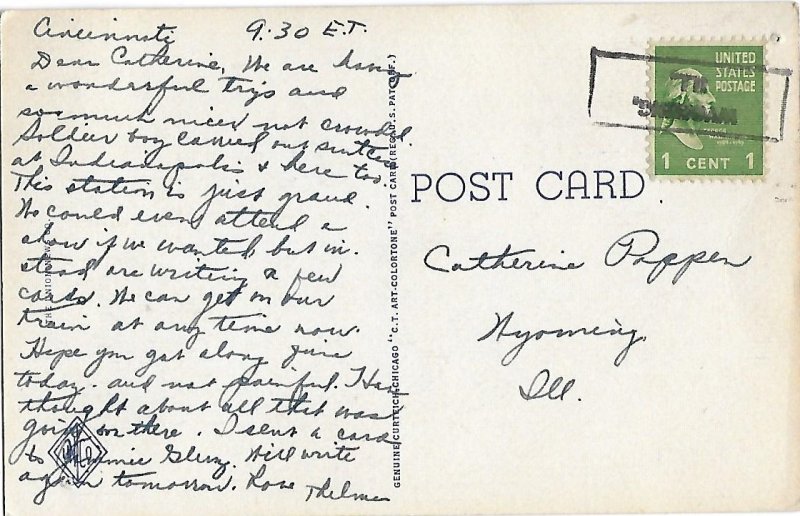 Cincinnati 9:30 E.T.
Dear Catherine, We are having
a wonderful trip and
so much nicer not crowded.
Soldier boy carried our suitcase
at Indianapolis & here too.
This station is just grand.
We could even attend a
show if we wanted but in-
stead are writing a few
cards. We can get on our
train at any time now.
Hope you got along fine
today. and not painful. Have
thought about all that was
going on there. I sent a card
to Glenz. Will write
again tomorrow. Love Thelma
GENUINE CURTEICH, CHICAGO "C.T. ART-COLORTONE" POST CARD (REG. U.S. PAT. OFF.)
POST CARD
UNITED
STATES
POSTAGE
1 CENT 1
WYOMING,
ILL
Catherine Pappen
Wyoming,
Ill.